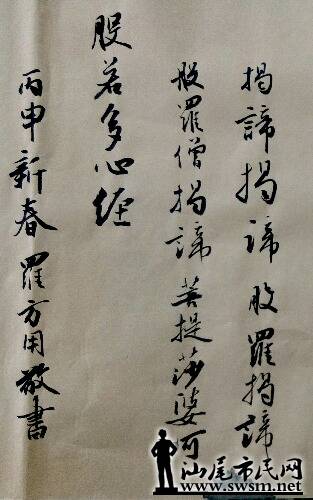 揭諦揭諦般羅揭諦
般羅僧揭諦菩提莎婆訶
般若多心經
丙申新春 羅方用敬書
汕尾市民网
www.swsm.net